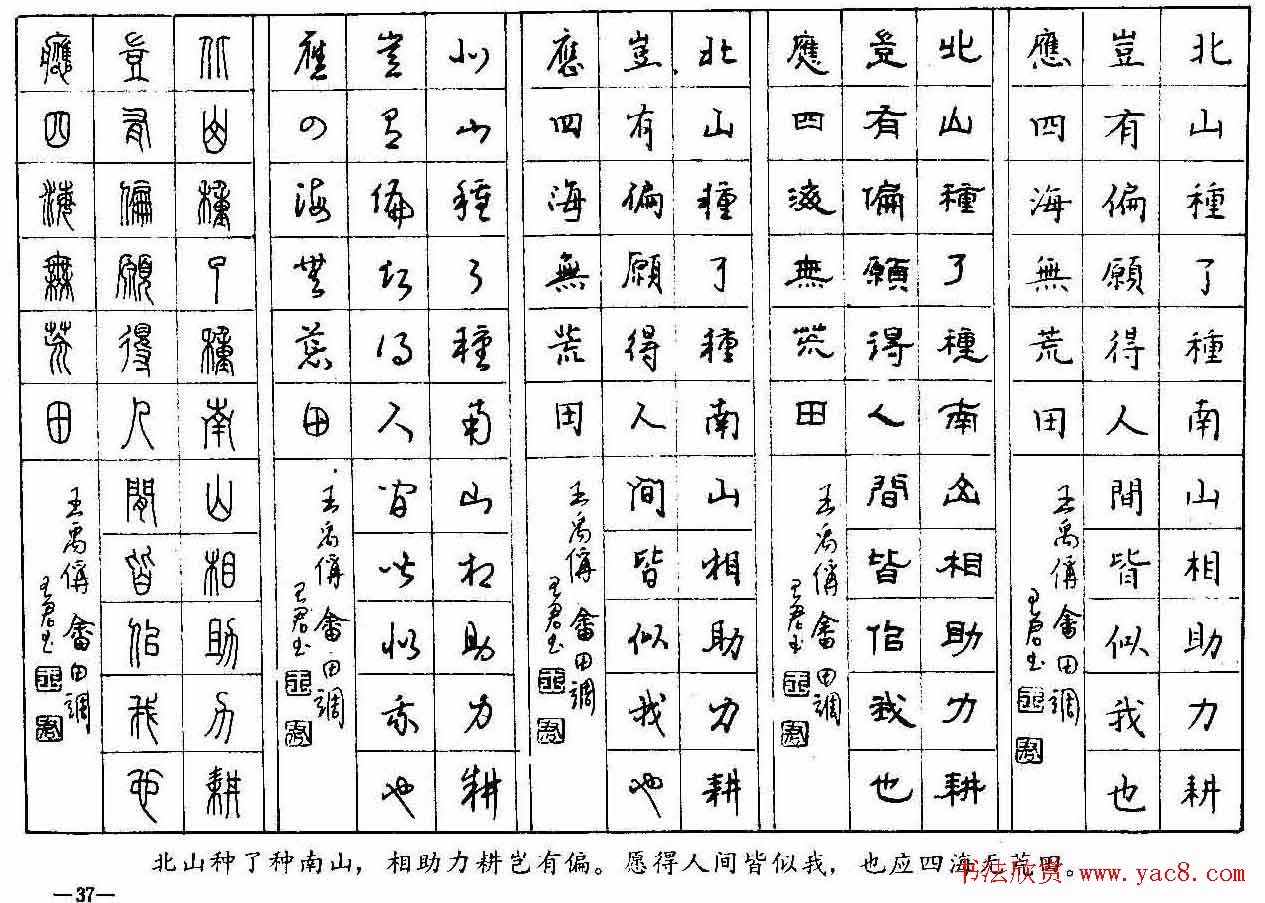 北山種了種南山相助力耕
豈有偏願得人間皆似我也
應四海無荒田
王禹偁畬田調
王君书
北山種了種南山相助力耕
豈有偏願得人間皆似我也
應四海無荒田
王禹偁畬田調
王君书
北山種了種南山相助力耕
豈有偏願得人間皆似我也
應四海無荒田
王禹偁畬田調
王君书
北山種了種南山相助力耕
豈有偏願得人間皆似我也
應四海無荒田
王禹偁畬田調
王君书
北山種了種南山相助力耕
豈有偏願得人間皆似我也
應四海無荒田
王禹偁畬田調
王君书
北山种了种南山，相助力耕岂有偏。愿得人间皆似我，也应四海无荒田。
书法欣赏 www.yac8.com
—37—